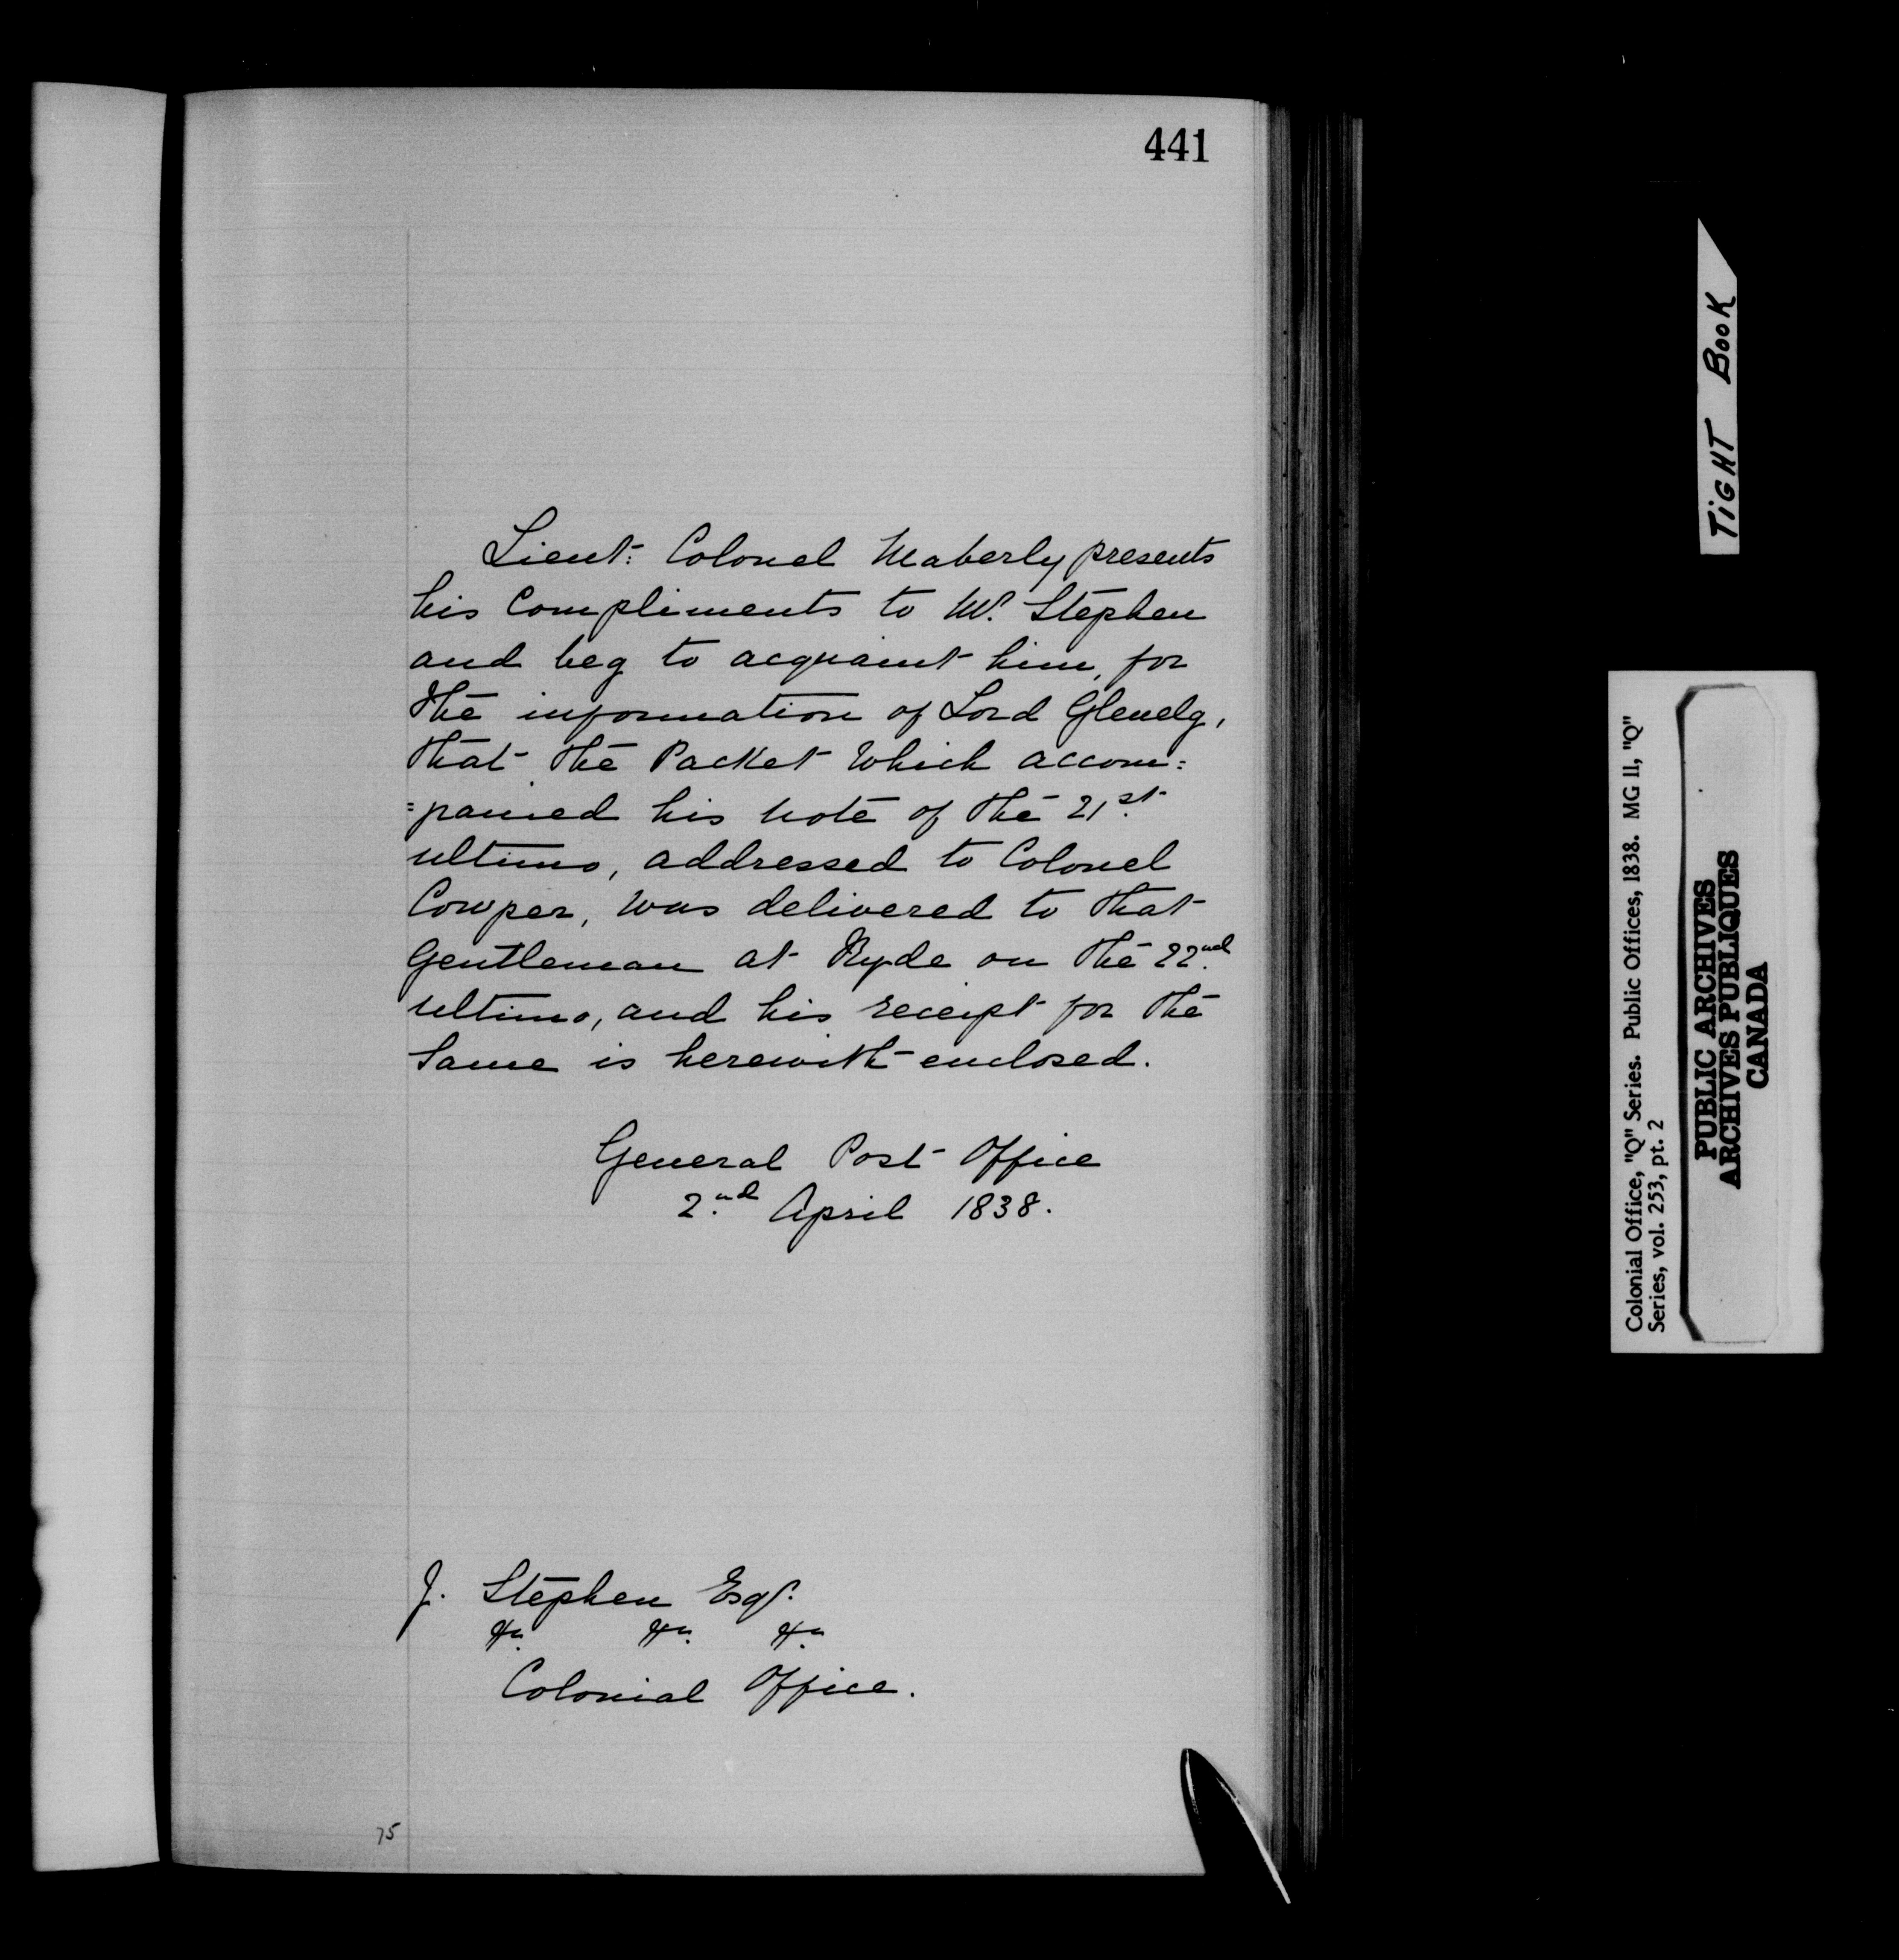 441
Lieut: Colonel Maberly presents
his Compliments to Mr. Stephen
and beg to acquaint him, for
the information of Lord Glenelg,
that the Packet which accom=
=panied his note of the 21st.
ultimo, addressed to Colonel
Cowper, was delivered to that
Gentleman at Ryde on the 22nd.
ultimo, and his receipt for the
Same is herewith enclosed.
General Post Office
2nd. April 1838.
J. Stephen Esqr.
&c. &c. &c.
Colonial Office.
75
TiGHT BOOK
Colonial Office, "Q" Series. Public Offices, 1838. MG 11, "Q"
Series, vol. 253, pt. 2
PUBLIC ARCHIVES
ARCHIVES PUBLIQUES
CANADA